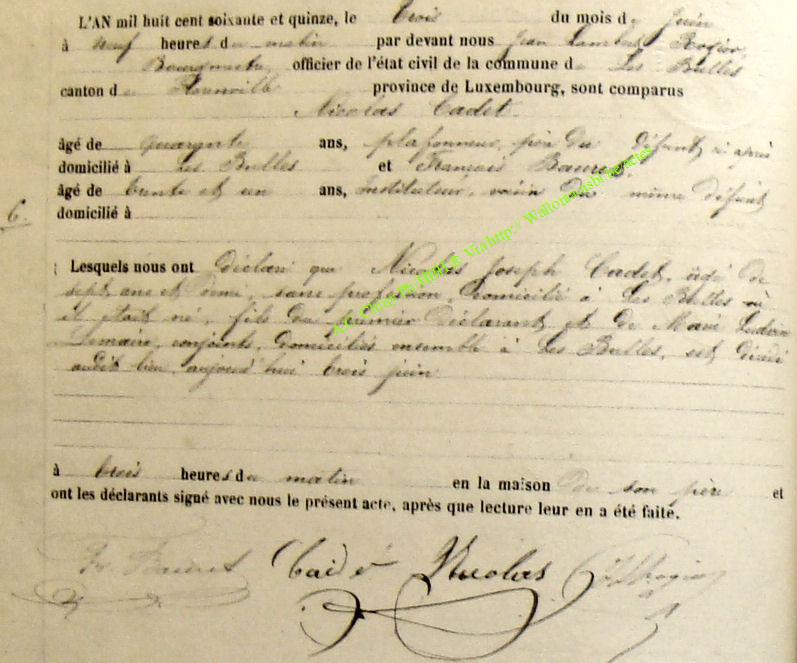 L'AN mil huit cent soixante et quinze, le trois du mois de Juin
à neuf heures du matin par devant nous Jean Lambert Rogier,
Bourgmestre, officier de l'état civil de la commune de Les Bulles
canton de Florenville province de Luxembourg, sont comparus
Nicolas Cadet
âgé de quarante ans, plafonneur, père du défunt ci après
domicilié à Les Bulles et François
âgé de trente et un ans, Instituteur, voisin du même défunt
6. domicilié à
Lesquels nous ont déclaré que Nicolas Joseph Cadet, âgé de
sept ans et demi, sans profession, domicilié à Les Bulles où
il était né, fils du premier déclarant et de Marie
Lemaire, conjoints, domiciliés ensemble à Les Bulles, est décédé
audit lieu, aujourd'hui trois juin
à trois heures du matin en la maison de son père et
ont les déclarants signé avec nous le présent acte, après que lecture leur en a été faite.
Cadé Nicolas JLRogier
Via http://